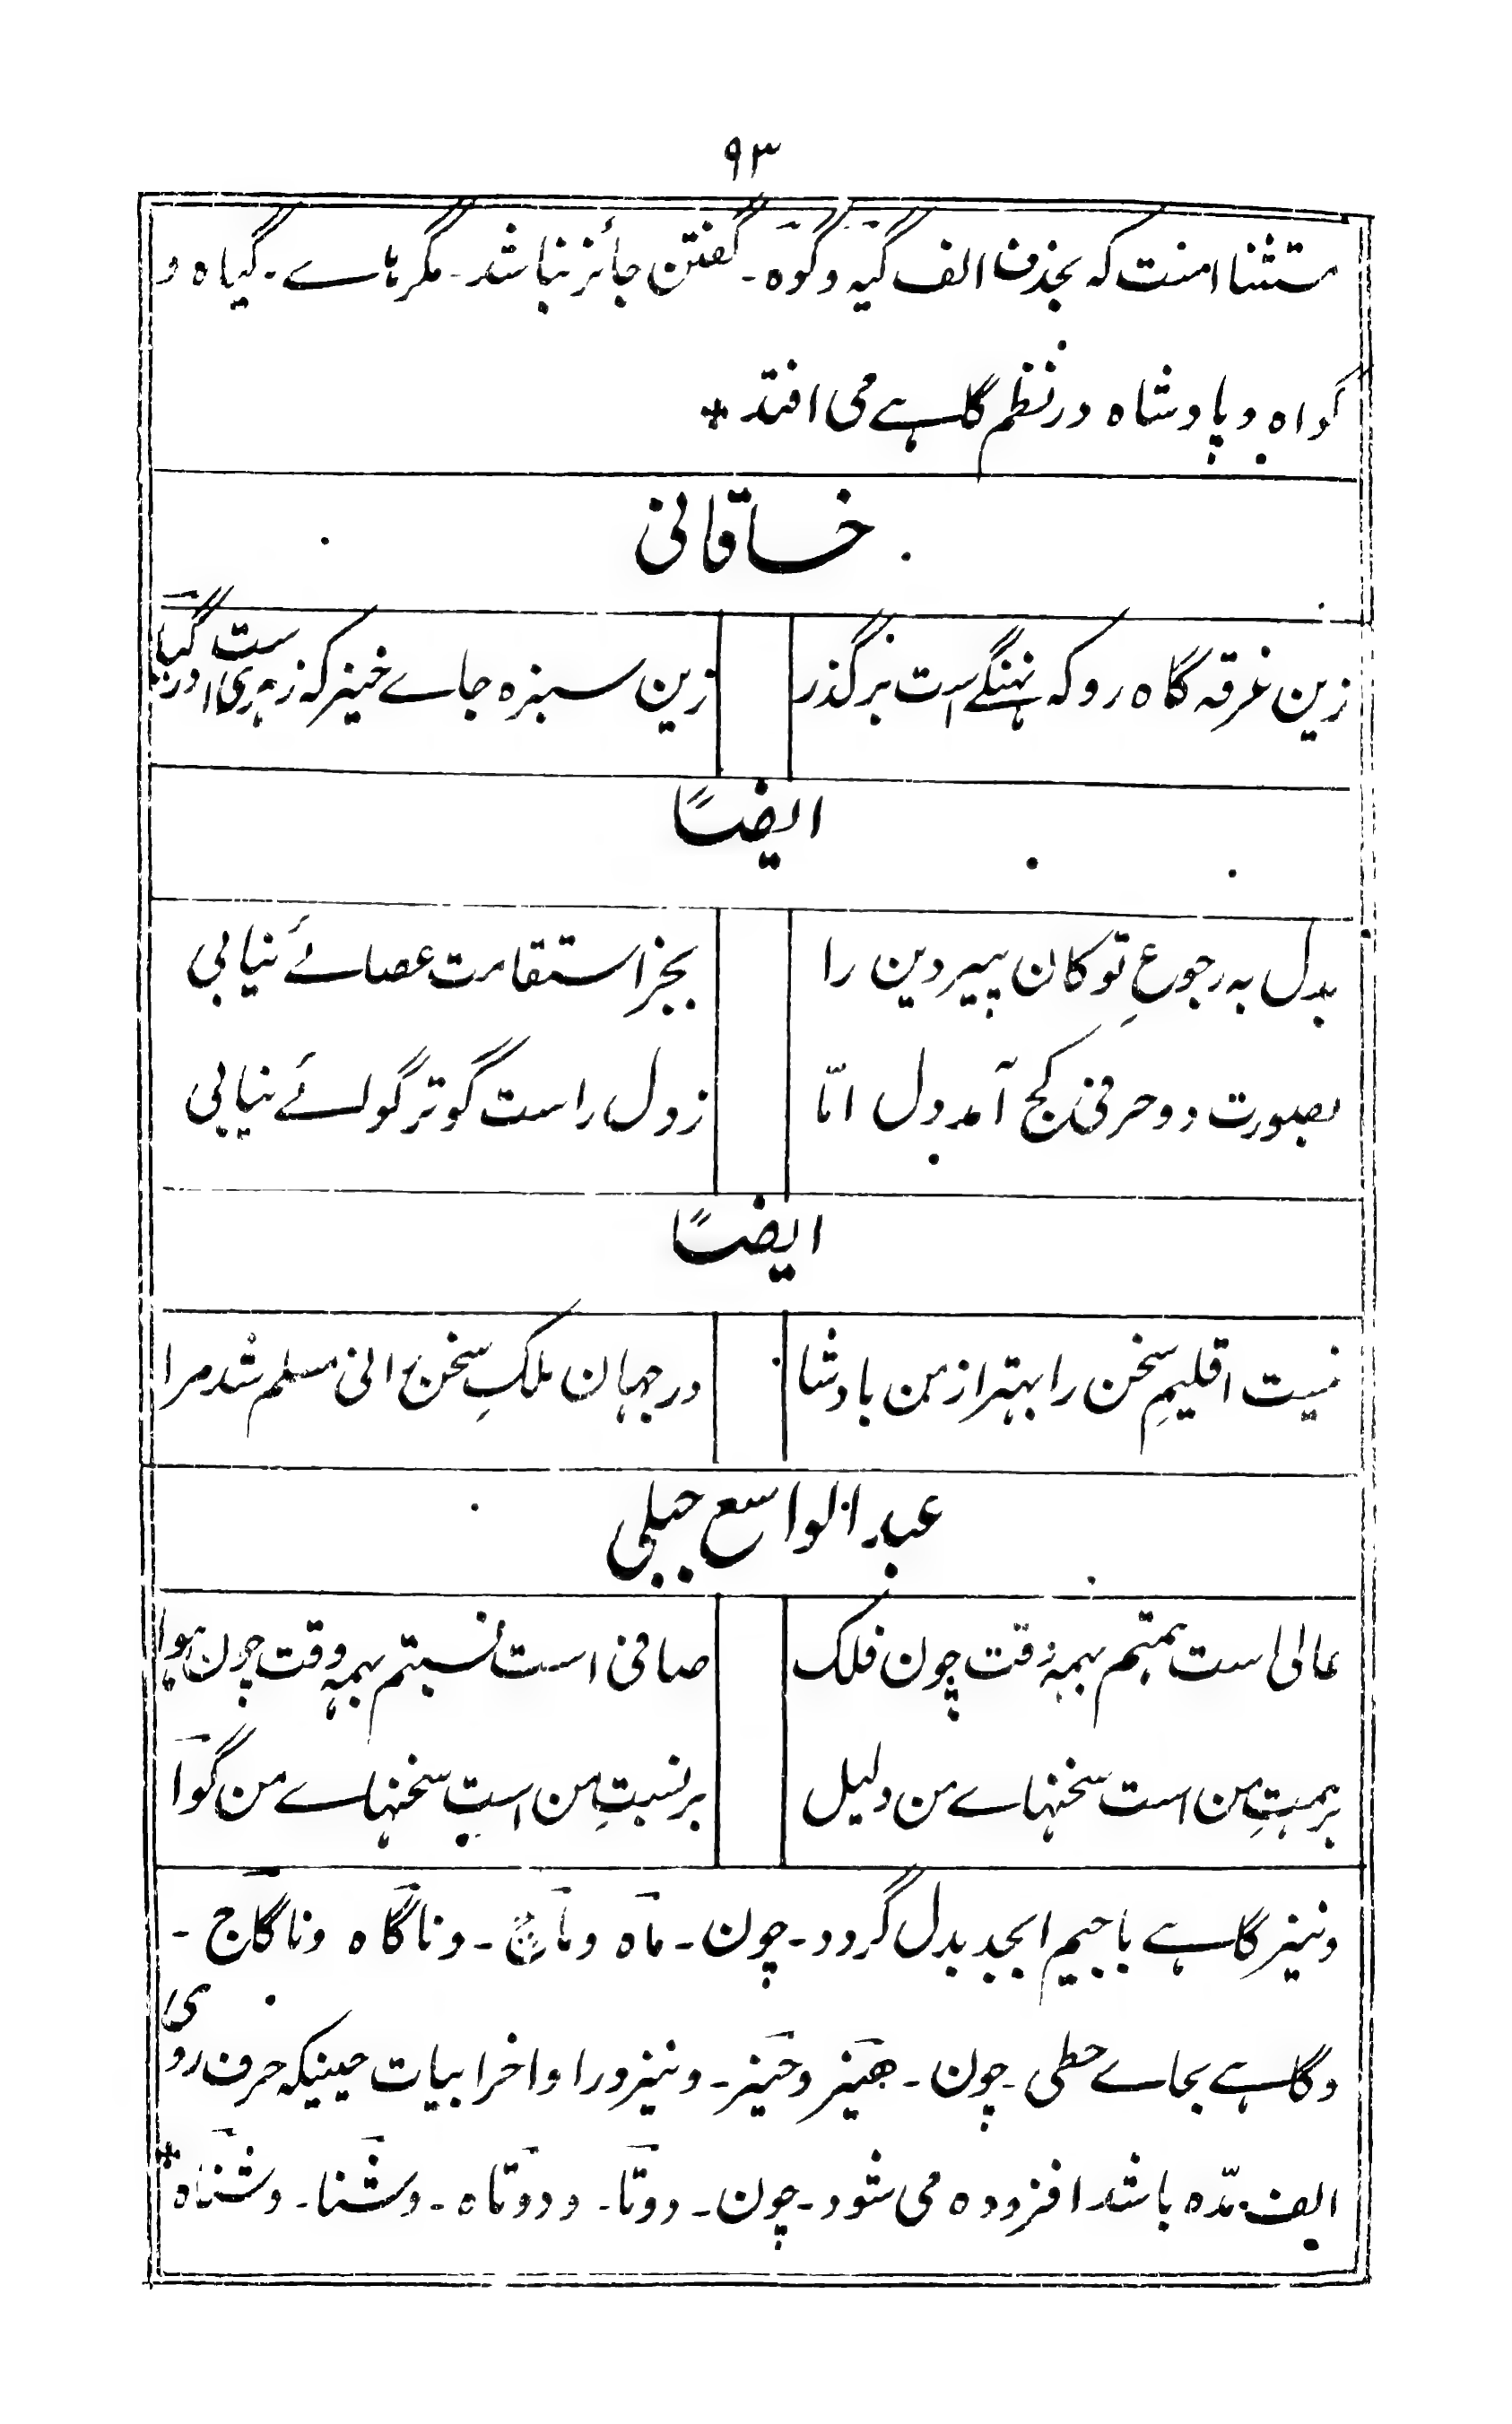 ۹۳
مستثنا است که بحذف الف گیه و گوه - گفتن جائز نباشد - مگر هاے - گیاه و
گواه و پادشاه در نظم گاہے می افتد *
خاقانی
زین غرقه گاه رو که نهنگے است بر گذر
زین سبزه جاے خیز که زهری است در گیا
ایضاً
بدل به رجوعِ تو کان پیر دین را
بجز استقامت عصائے نیابی
بصورت دو حرفی کج آمد دل امّا
ز دل راست گو تر گوائے نیابی
ایضاً
نیست اقلیمِ سخن را بهتر از من بادشا
در جهان ملکِ سخن رانی مسلم شد مرا
عبد الواسع جبلی
عالی است همتم بهمه وقت چون فلک
صافی است نسبتم بهمه وقت چون هوا
بر همتِ من است سخنهاے من دلیل
بر نسبتِ من است سخنهاے من گوا
و نیز گاہے با جیم ابجد بدل گردد - چون - ماه و ماج - و ناگاه و ناگاج -
و گاہے بحاے حطی - چون - هیز و حیز - و نیز در اواخر ابیات حینیکه حرف روی
الف مدّه باشد افزوده می شود - چون - دوتا - و دوتاه - و شنا - و شناه *